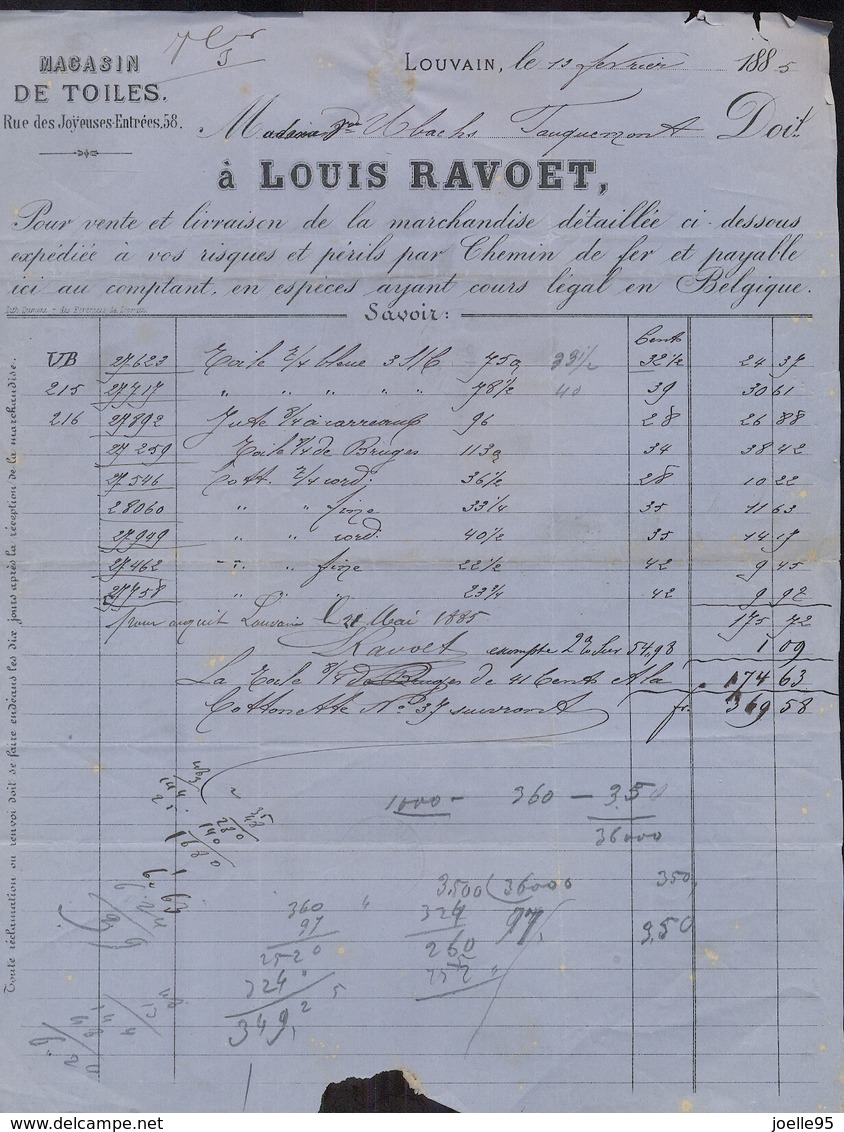 MAGASIN
DE TOILES.
Rue des Joyeuses-Entrées, 58.
Louvain, le 13 fevrier 1885
Madame Vve Ubachs Fauquemont Doit
à LOUIS RAVOET,
Pour vente et livraison de la marchandise détaillée ci-dessous
expédiée à vos risques et périls par Chemin de fer et payable
ici au comptant, en espèces ayant cours légal en Belgique.
Savoir:
Cent
UB 27623 Toile 7/4 bleue 3 75 33 1/2 32 1/2 24 37
215 27717 " " " " " 78 1/2 40 39 30 61
216 27892 Jute 8/4 à carreaux 96 28 26 88
27259 Toile 8/4 de Bruges 113 34 38 42
27546 Cott. 7/4 cord: 36 1/2 28 10 22
28060 " " fine 33 1/4 35 11 63
27999 " " cord: 40 1/2 35 14 17
27462 " " fine 22 1/2 42 9 45
27758 " " " 23 3/4 42 9 92
pour acquit Louvain le 21 Mai 1885 175 72
L Ravoet escompte 2% sur 54,98 1 09
La Toile 8/4 de Bruges de 41 Cents & la 174 63
Cottonette No 37 suivront fr. 369 58
1000 - 360 - 3.50
36000
3,500 ( 36000 350,
360 " 324 97,
97 260 3,50
2520 252
324
349,2
Toute réclamation ou renvoi doit se faire endéans les dix jours après la réception de la marchandise.
joelle95